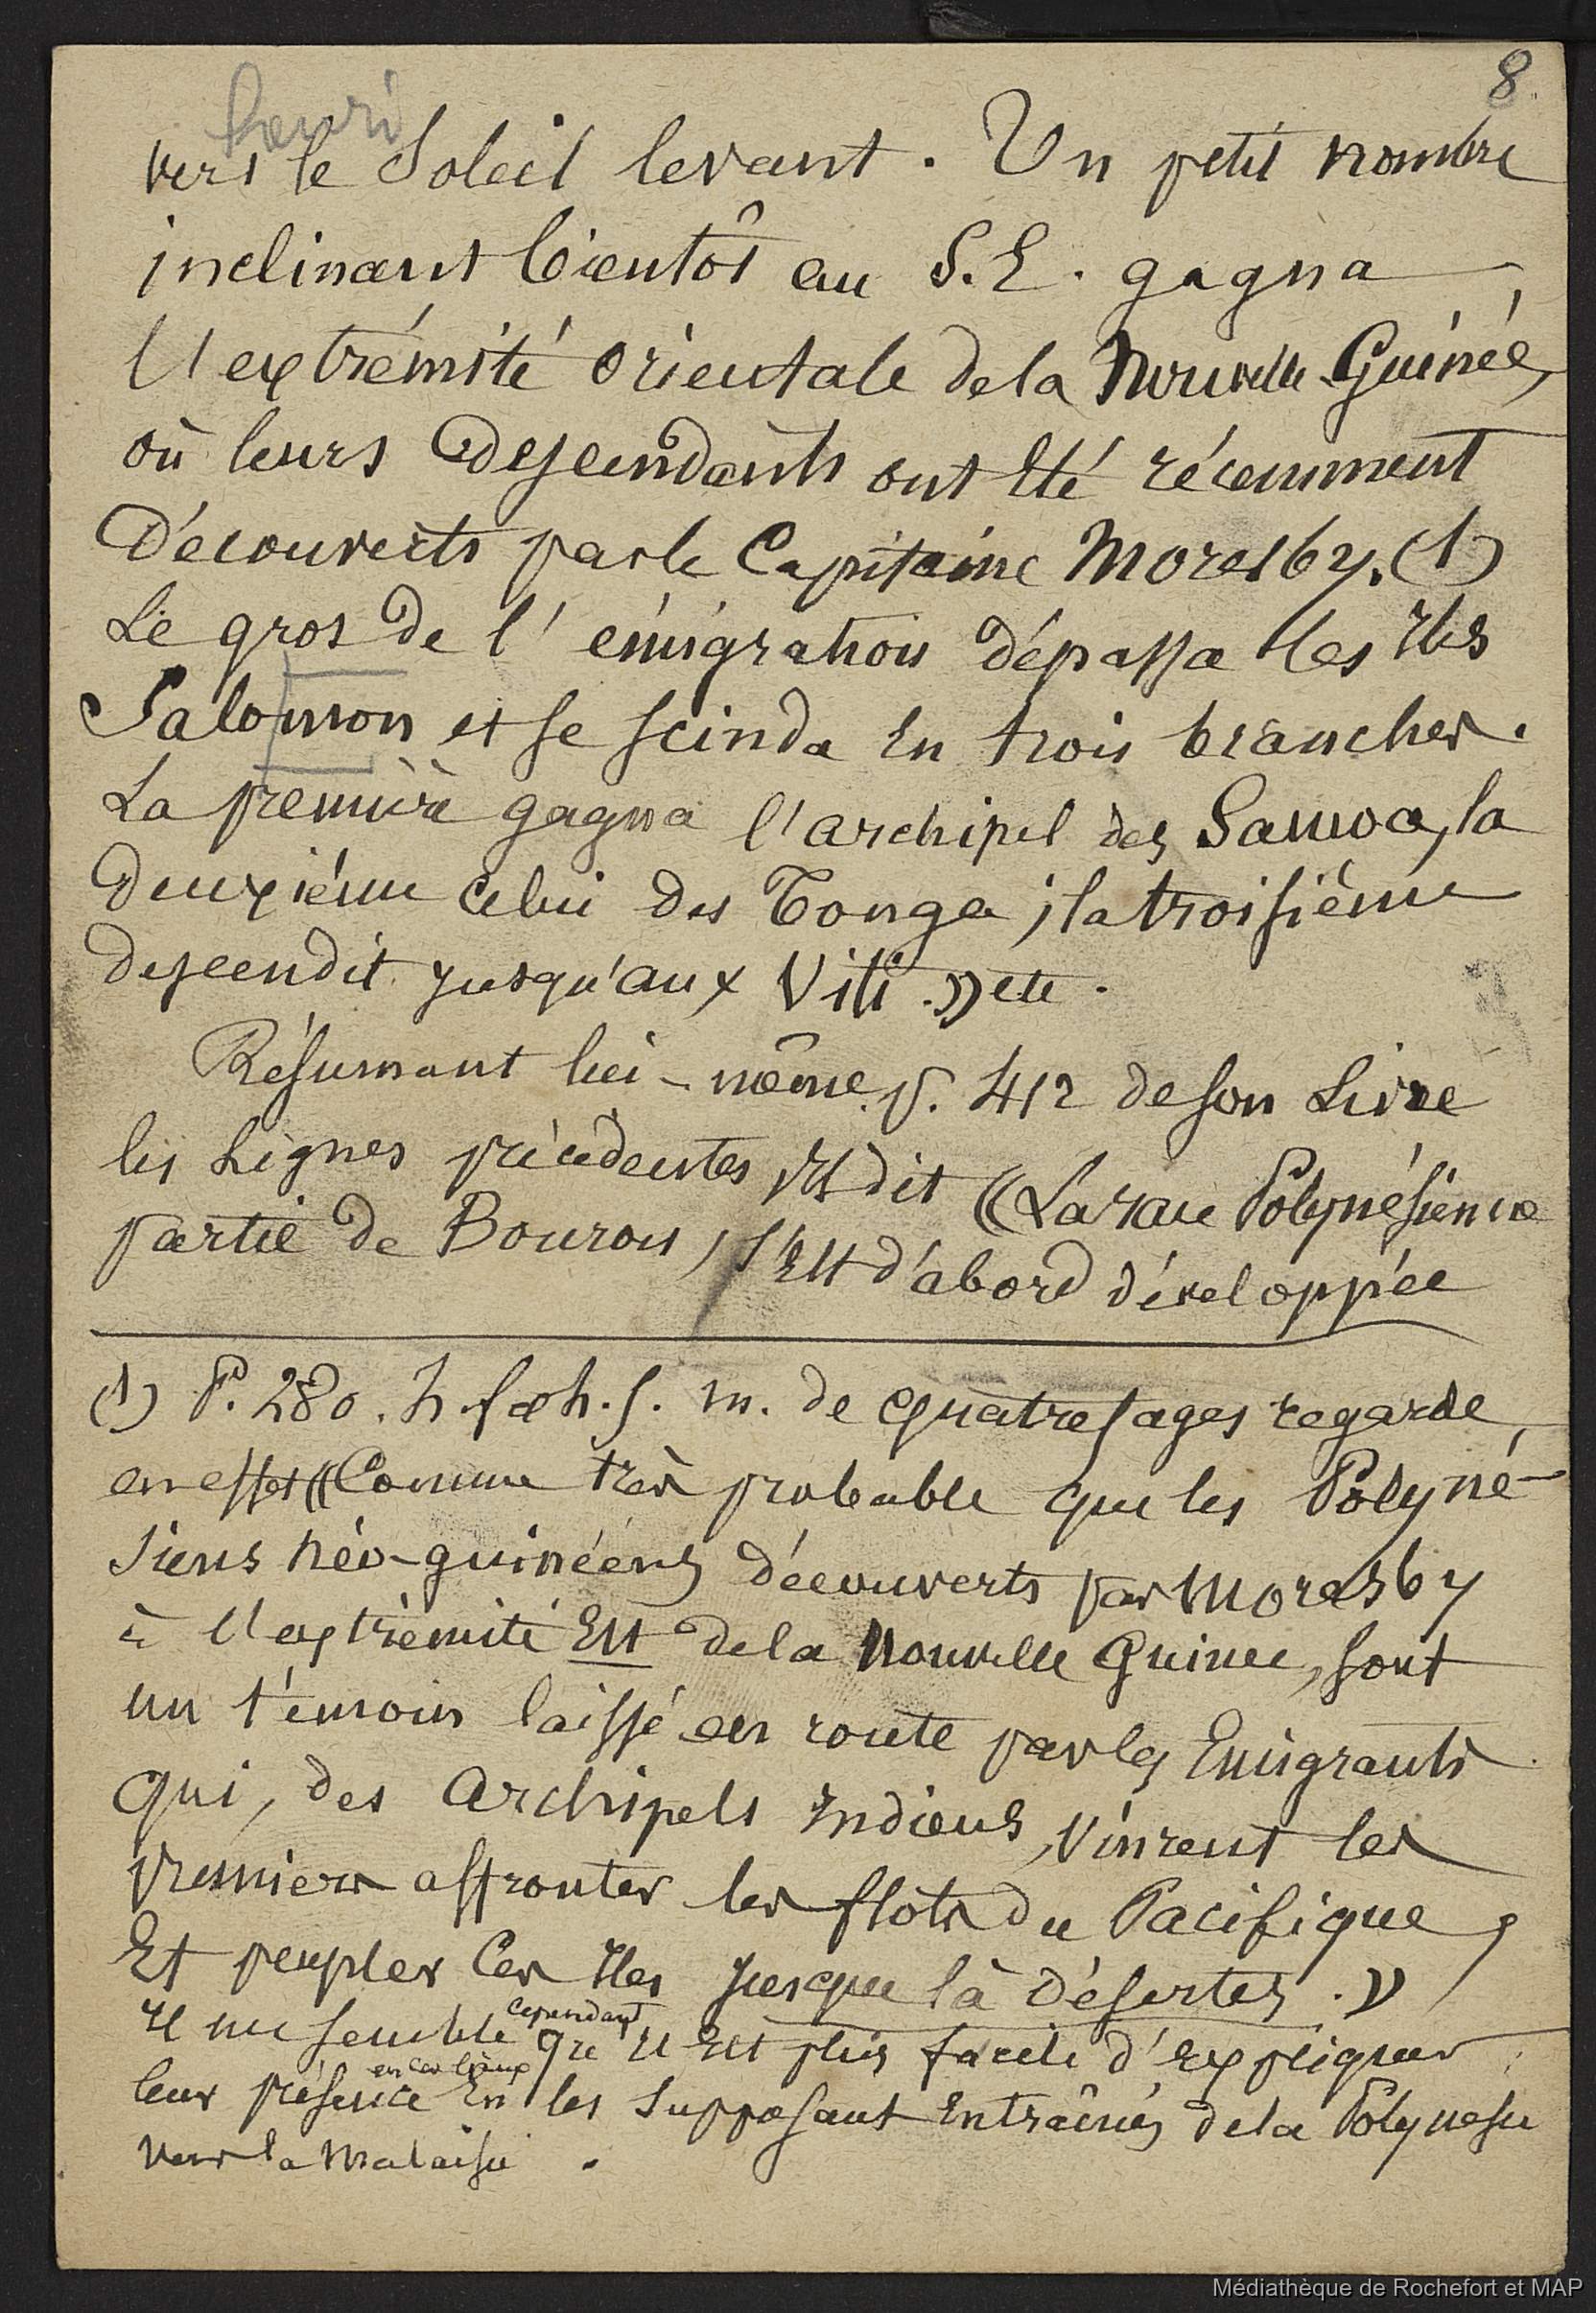 8
vers le Soleil levant. Un petit nombre
inclinant bientôt au S.E. gagna
l'extrémité orientale de la Nouvelle Guinée,
où leurs descendants ont été récemment
découverts par le Capitaine Moresby. (1)
Le gros de l'émigration dépassa les Iles
Salomon et se scinda en trois branches.
La première gagna l'archipel des Samoa, la
deuxième celui des Tonga ; la troisième
descendit jusqu'aux Viti. » etc.
Résumant lui-même p. 412 de son Livre
les Lignes précédentes, il dit « La race Polynésienne
partie de Bourou, s'est d'abord développée
(1) P. 280. M. de Quatrefages regarde,
en effet « Comme très probable que les Polyné-
siens néo-guinéens découverts par Moresby
à l'extrémité Est de la Nouvelle Guinée, sont
un témoin laissé en route par les Emigrants
qui, des archipels Indiens, vinrent les
premiers affronter les flots du Pacifique,
Et peupler Ces Iles jusque là désertes. »
Il me semble cependant que il est plus facile d'expliquer
leur présence en ces lieux En les supposant Entraînés de la Polynésie
vers la Malaisie.
Médiathèque de Rochefort et MAP